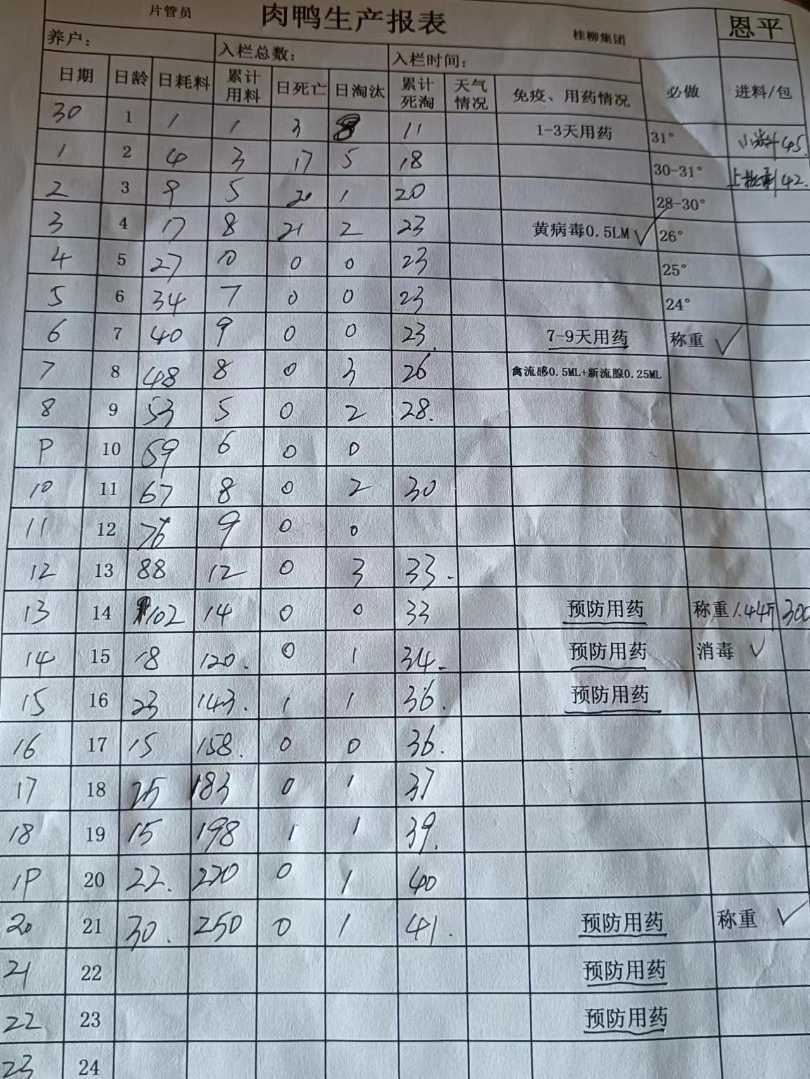 片管员 肉鸭生产报表 桂柳集团 恩平
养户: 入栏总数: 入栏时间:
日期 日龄 日耗料 累计用料 日死亡 日淘汰 累计死淘 天气情况 免疫、用药情况 必做 进料/包
30 1 1 1 3 8 11 1-3天用药 31° 45
1 2 4 3 17 5 18 30-31° 42
2 3 9 5 20 1 20 28-30°
3 4 17 8 21 2 23 黄病毒0.5LM ✓ 26°
4 5 27 10 0 0 23 25°
5 6 34 7 0 0 23 24°
6 7 40 9 0 0 23 7-9天用药 称重 ✓
7 8 48 8 0 3 26 禽流感0.5ML+新流腺0.25ML
8 9 53 5 0 2 28.
9 10 59 6 0 0
10 11 67 8 0 2 30
11 12 76 9 0 0
12 13 88 12 0 3 33.
13 14 102 14 0 0 33 预防用药 称重 1.44斤 300
14 15 18 120. 0 1 34. 预防用药 消毒 ✓
15 16 23 143. 1 1 36. 预防用药
16 17 15 158. 0 0 36.
17 18 25 183 0 1 37
18 19 15 198 1 1 39.
19 20 22. 220 0 1 40
20 21 30. 250 0 1 41. 预防用药 称重 ✓
21 22 预防用药
22 23 预防用药
23 24